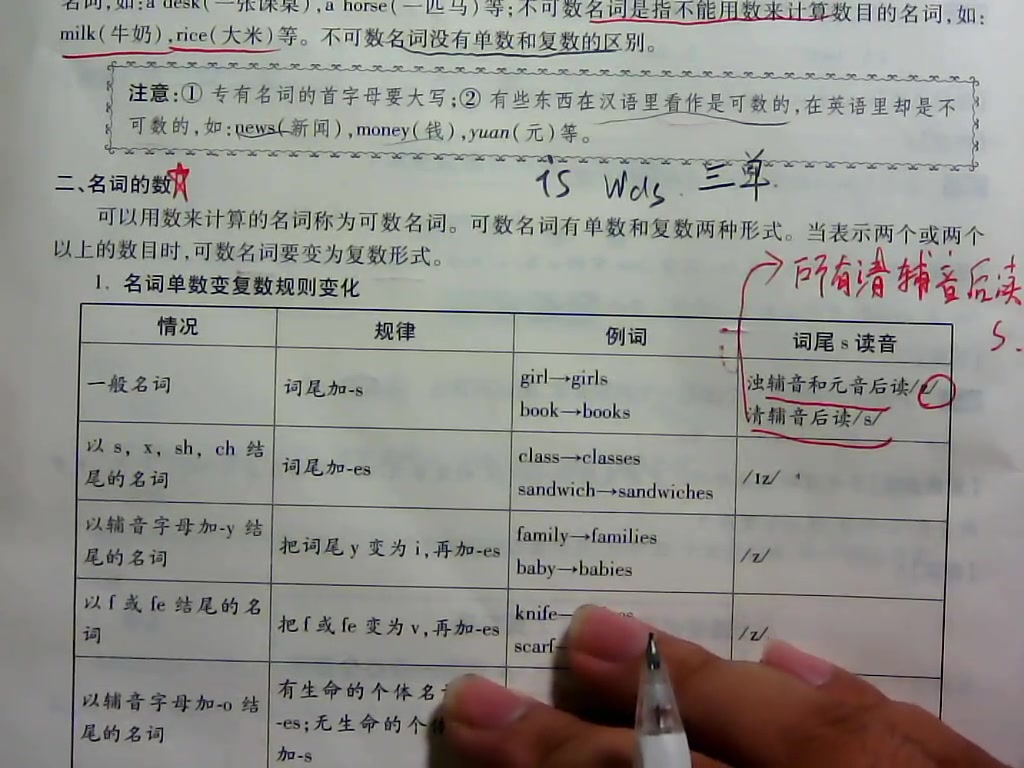 名词,如:a desk(一张课桌),a horse(一匹马)等;不可数名词是指不能用数来计算数目的名词,如:
milk(牛奶),rice(大米)等。不可数名词没有单数和复数的区别。
注意:① 专有名词的首字母要大写;② 有些东西在汉语里看作是可数的,在英语里却是不
可数的,如:news(新闻),money(钱),yuan(元)等。
二、名词的数
is wds. 三单.
可以用数来计算的名词称为可数名词。可数名词有单数和复数两种形式。当表示两个或两个
以上的数目时,可数名词要变为复数形式。
所有清辅音后读
s.
1. 名词单数变复数规则变化
情况 规律 例词 词尾 s 读音
一般名词 词尾加-s girl→girls 浊辅音和元音后读/
book→books 清辅音后读/s/
以 s, x, sh, ch 结 词尾加-es class→classes /ɪz/
尾的名词 sandwich→sandwiches
以辅音字母加-y 结 把词尾 y 变为 i,再加-es family→families /z/
尾的名词 baby→babies
以 f 或 fe 结尾的名 把 f 或 fe 变为 v,再加-es knife /z/
词 scarf
以辅音字母加-o 结 有生命的个体名
尾的名词 -es;无生命的个
加-s